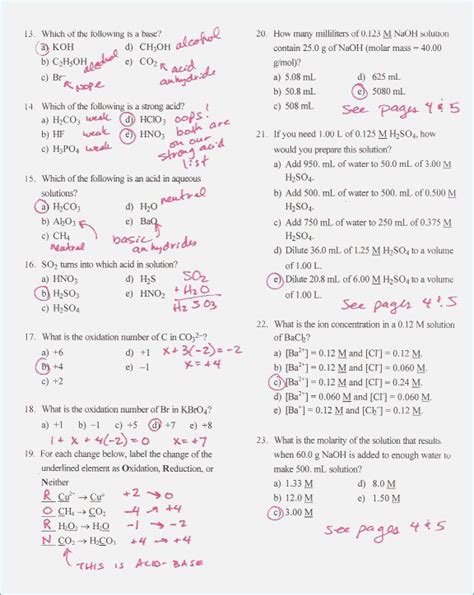 13. Which of the following is a base?
a) KOH d) CH₃OH alcohol
b) C₂H₅OH alcohol e) CO₂ acid
c) Br⁻ nope anhydride
14. Which of the following is a strong acid?
a) H₂CO₃ weak d) HClO₃ oops!
b) HF weak e) HNO₃ both are
c) H₃PO₄ weak on our
strong acid
list
15. Which of the following is an acid in aqueous
solutions?
a) H₂CO₃ d) H₂O neutral
b) Al₂O₃ e) BaO
c) CH₄ basic
neutral anhydrides
16. SO₂ turns into which acid in solution?
a) HNO₃ d) H₂S SO₂
b) H₂SO₃ e) HNO₂ + H₂O
c) H₂SO₄ H₂SO₃
17. What is the oxidation number of C in CO₃²⁻?
a) +6 d) +1 x + 3(-2) = -2
b) +4 e) −1 x = +4
c) +2
18. What is the oxidation number of Br in KBrO₄?
a) +1 b) −1 c) +5 d) +7 e) −8
1 + x + 4(-2) = 0 x = +7
19. For each change below, label the change of the
underlined element as Oxidation, Reduction, or
Neither
R Cu²⁺ → Cu⁰ +2 → 0
O CH₄ → CO₂ -4 → +4
R H₂O₂ → H₂O -1 → -2
N CO₂ → H₂CO₃ +4 → +4
THIS IS ACID-BASE
20. How many milliliters of 0.123 M NaOH solution
contain 25.0 g of NaOH (molar mass = 40.00
g/mol)?
a) 5.08 mL d) 625 mL
b) 50.8 mL e) 5080 mL
c) 508 mL see pages 4 & 5
21. If you need 1.00 L of 0.125 M H₂SO₄, how
would you prepare this solution?
a) Add 950. mL of water to 50.0 mL of 3.00 M
H₂SO₄.
b) Add 500. mL of water to 500. mL of 0.500 M
H₂SO₄.
c) Add 750 mL of water to 250 mL of 0.375 M
H₂SO₄.
d) Dilute 36.0 mL of 1.25 M H₂SO₄ to a volume
of 1.00 L.
e) Dilute 20.8 mL of 6.00 M H₂SO₄ to a volume
of 1.00 L.
see pages 4 & 5
22. What is the ion concentration in a 0.12 M solution
of BaCl₂?
a) [Ba²⁺] = 0.12 M and [Cl⁻] = 0.12 M.
b) [Ba²⁺] = 0.12 M and [Cl⁻] = 0.06 M.
c) [Ba²⁺] = 0.12 M and [Cl⁻] = 0.24 M.
d) [Ba²⁺] = 0.06 M and [Cl⁻] = 0.12 M.
e) [Ba⁺] = 0.12 M and [Cl₂⁻] = 0.12 M.
23. What is the molarity of the solution that results
when 60.0 g NaOH is added to enough water to
make 500. mL solution?
a) 1.33 M d) 8.0 M
b) 12.0 M e) 1.50 M
c) 3.00 M
see pages 4 & 5